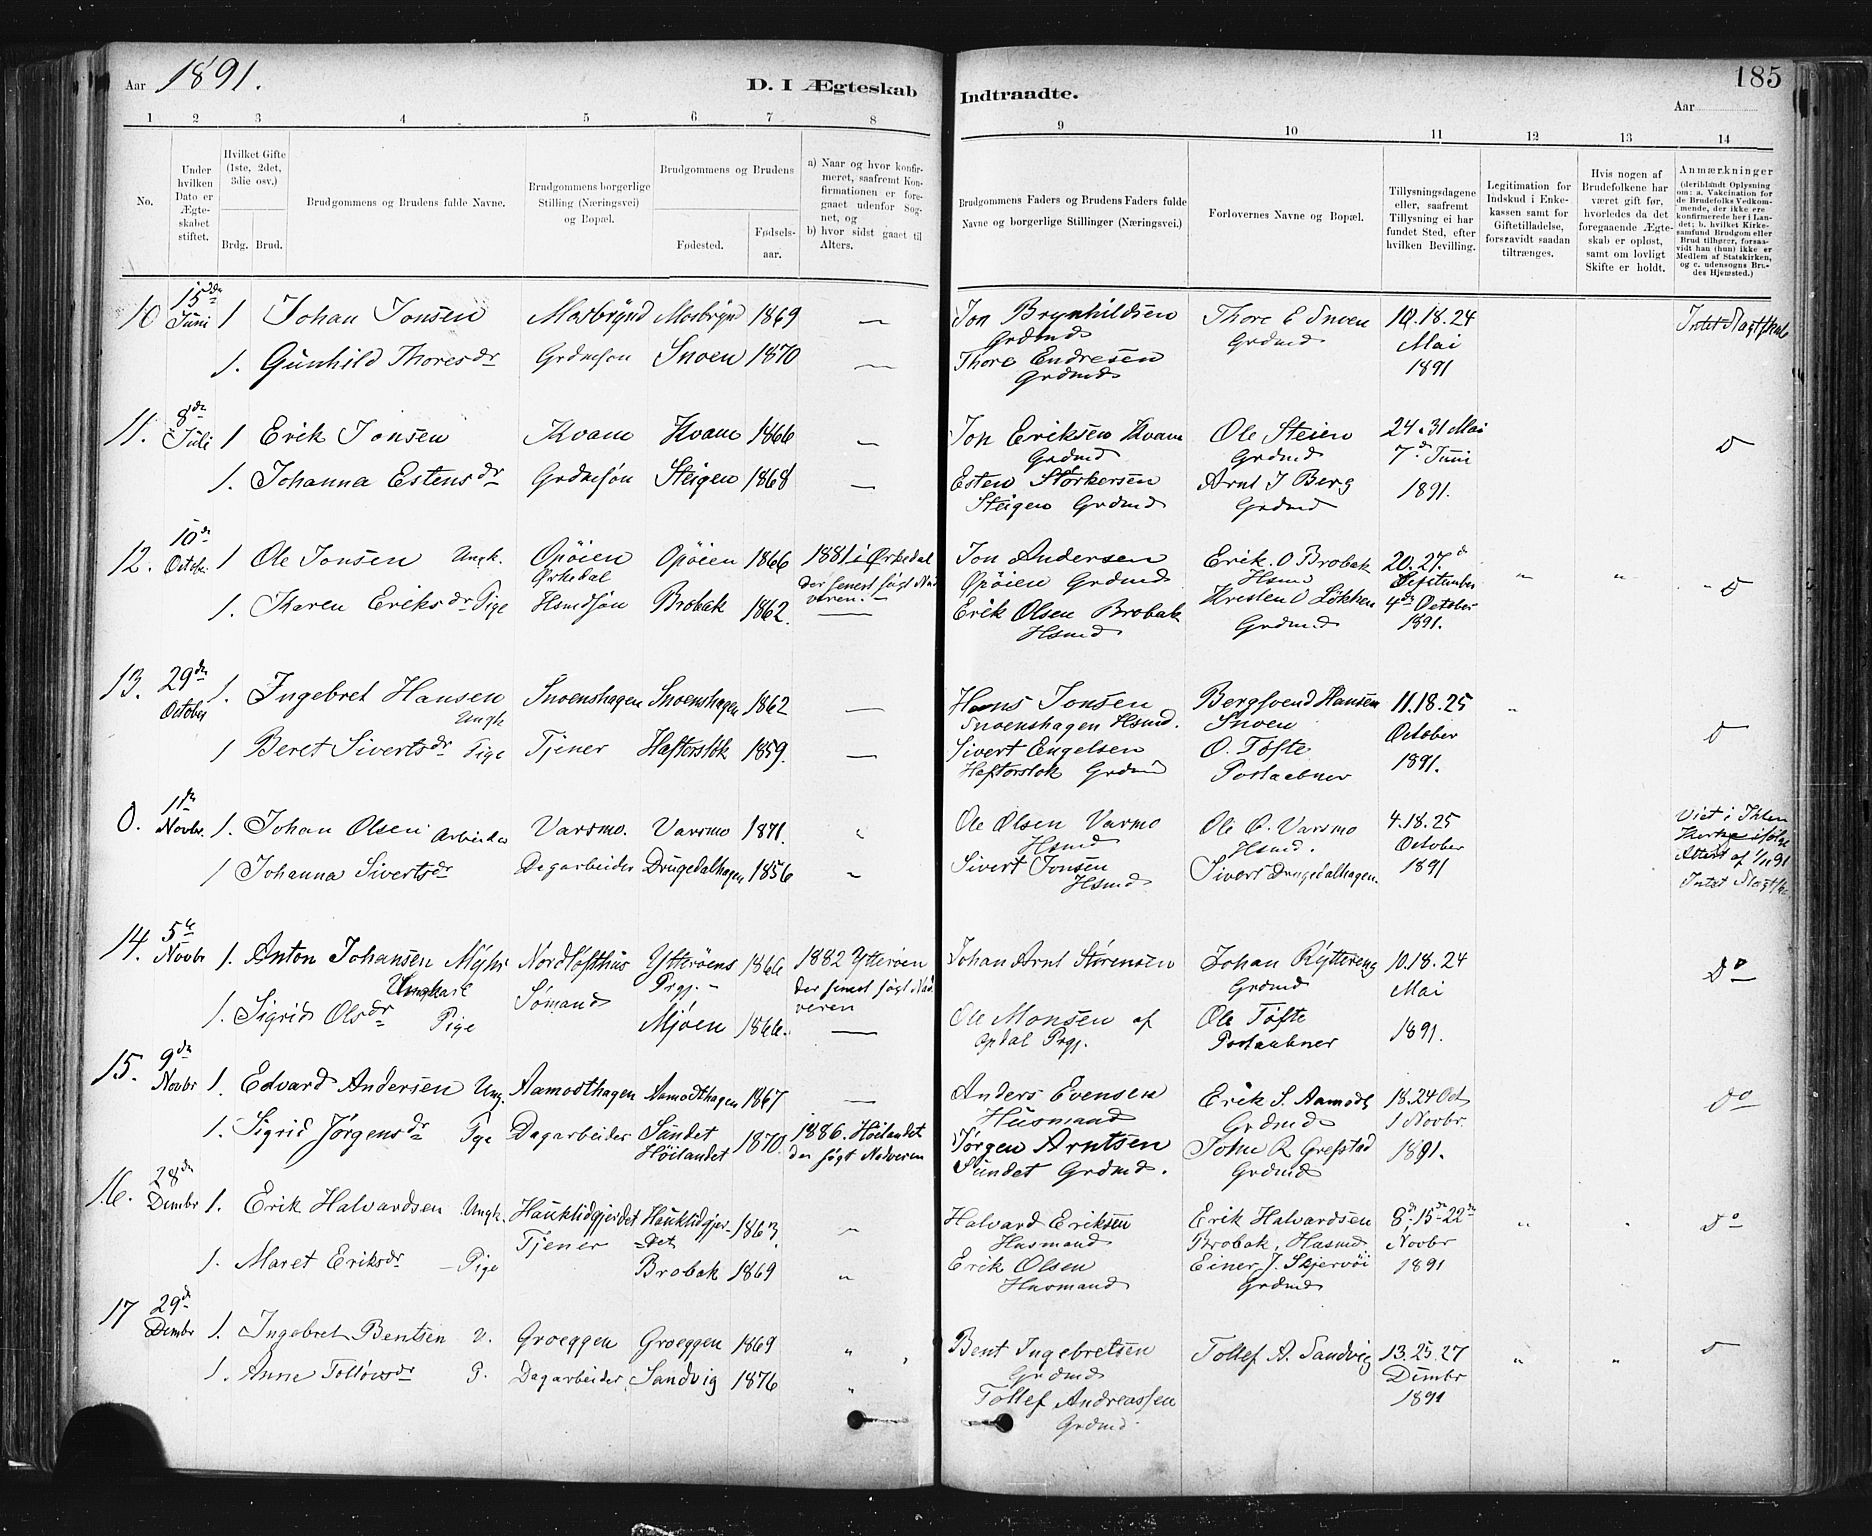 Aar 1891.
D. I Ægteskab Indtraadte.
185
Aar
1 2 3 4 5 6 7 8 9 10 11 12 13 14
No.
Under hvilken Dato er Ægteskabet stiftet.
Hvilket Gifte (1ste, 2det, 3die osv.)
Brdg. Brud.
Brudgommens og Brudens fulde Navne.
Brudgommens borgerlige Stilling (Næringsvei) og Bopæl.
Brudgommens og Brudens
Fødested. Fødselsaar.
a) Naar og hvor konfirmeret, saafremt Konfirmationen er foregaaet udenfor Sognet, og
b) hvor sidst gaaet til Alters.
Brudgommens Faders og Brudens Faders fulde Navne og borgerlige Stillinger (Næringsvei.)
Forlovernes Navne og Bopæl.
Tillysningsdagene eller, saafremt Tillysning ei har fundet Sted, efter hvilken Bevilling.
Legitimation for Indskud i Enkekassen samt for Giftetilladelse, forsaavidt saadan tiltrænges.
Hvis nogen af Brudefolkene har været gift før, hvorledes da det foregaaende Ægteskab er opløst, samt om lovligt Skifte er holdt.
Anmærkninger (deriblandt Oplysning om: a. Vakcination for de Brudefolks Vedkommende, der ikke ere konfirmerede her i Landet; b. hvilket Kirkesamfund Brudgom eller Brud tilhører, forsaavidt han (hun) ikke er Medlem af Statskirken, og c. udensogns Brudes Hjemsted.)
10 15de Juni 1 Johan Jonsen Mosbrynd Mosbrynd 1869 — Jon Brynhildsen Grdmd Thore E Snoen Grdmd 10.18.24 Mai 1891 Intet Slægtskab
1. Gunhild Thoresdr Grdmsøn Snoen 1870 — Thore Endresen Grdmd
11. 8de Juli 1 Erik Jonsen Kvam Kvam 1866 — Jon Eriksen Kvam Grdmd Ole Steien Grdmd 24. 31 Mai 7de Juni 1891.
1. Johanna Estensdr Grdmsøn Steigen 1868 — Esten Størkersen Steigen Grdmd Arnt J Berg Grdmd
12. 10de Octobr 1 Ole Jonsen Ungk. Opøien Ørkedal Opøien 1866 1881 i Ørkedal Der senest søgt Nadveren. Jon Andersen Opøien Grdmd Erik O Brobak Hsmd 20. 27.d September 4de October 1891.
1. Karen Eriksdr Pige Hsmdsøn Brobak 1862. — Erik Olsen Brobak Hsmd Kristen O Løkken Grdmd
13. 29de October 1. Ingebret Hansen Ungk Snoenshagen Snoenshagen 1862 — Hans Jonsen Snoenshagen Hsmd. Bergsvend Hansen Snoen 11.18.25 October 1891.
1 Beret Sivertsdr Pige Tjener Haftorslok 1859. — Sivert Engelsen Haftorslok Grdmd O. Tøfte Postaabner
0. 1de Novbr. 1. Johan Olsen Arbeider Varsmo. Varsmo 1871. Ole Olsen Varmo Hsmd Ole O. Varsmo Hsmd. 4.18.25 October 1891 Viet i Ihlen Kirke ifølge Attest af 1/11 91 Intet Slægtsk.
1 Johanna Sivertsdr Dagarbeider Drugedalhagen 1856 Sivert Jonsen Hsmd Sivert Drugedalhagen.
14. 5te Novbr 1. Anton Johansen Myhr Ungkarl Nordlofthus Ytterøens Prgj. 1866 1882 Ytterøen der senest søgt Nadveren Johan Arnt Størensen Johan Ryttereng Grdmd 10.18.24 Mai 1891. Do
1. Sigrid Olsdr Pige Sømand Mjøen 1866. — Ole Monsen af Opdal Prgj. Ole Tøfte Postaabner
15. 9de Novbr 1. Edvard Andersen Ung. Aamodthagen Aamodthagen 1867 — Anders Evensen Husmand Erik S. Aamodt Grdmd 18.24 Oct 1 Novbr. 1891. Do
1. Sigrid Jørgensdr Pge Dagarbeider Sundet Høilandet 1870. 1886. Høilandet der søgt Nadveren Jørgen Arntsen Sundet Grdmd. John R Grefstad Grdmd
16. 28de Dcmbr 1. Erik Halvardsen Ungk. Hauklidgjerdet Hauklidgjerdet 1863. Halvard Eriksen Husmand Erik Halvardsen Brobak, Husmd 8de-15de-22de Novbr 1891 Do
1. Maret Eriksdr Pige Tjener Brobak 1869 Erik Olsen Husmand Einer J. Skjervøi Grdmd
17 29de Dcmbr 1. Ingebret Bentsen U. Groeggen Groeggen 1869 Bent Ingebretsen Grdmd Tollef A. Sandvig 13.25.27 Dcmbr 1891
1. Anne Tollovsdr P. Dagarbeider Sandvig 1876 Tollef Andreassen Grdmd.